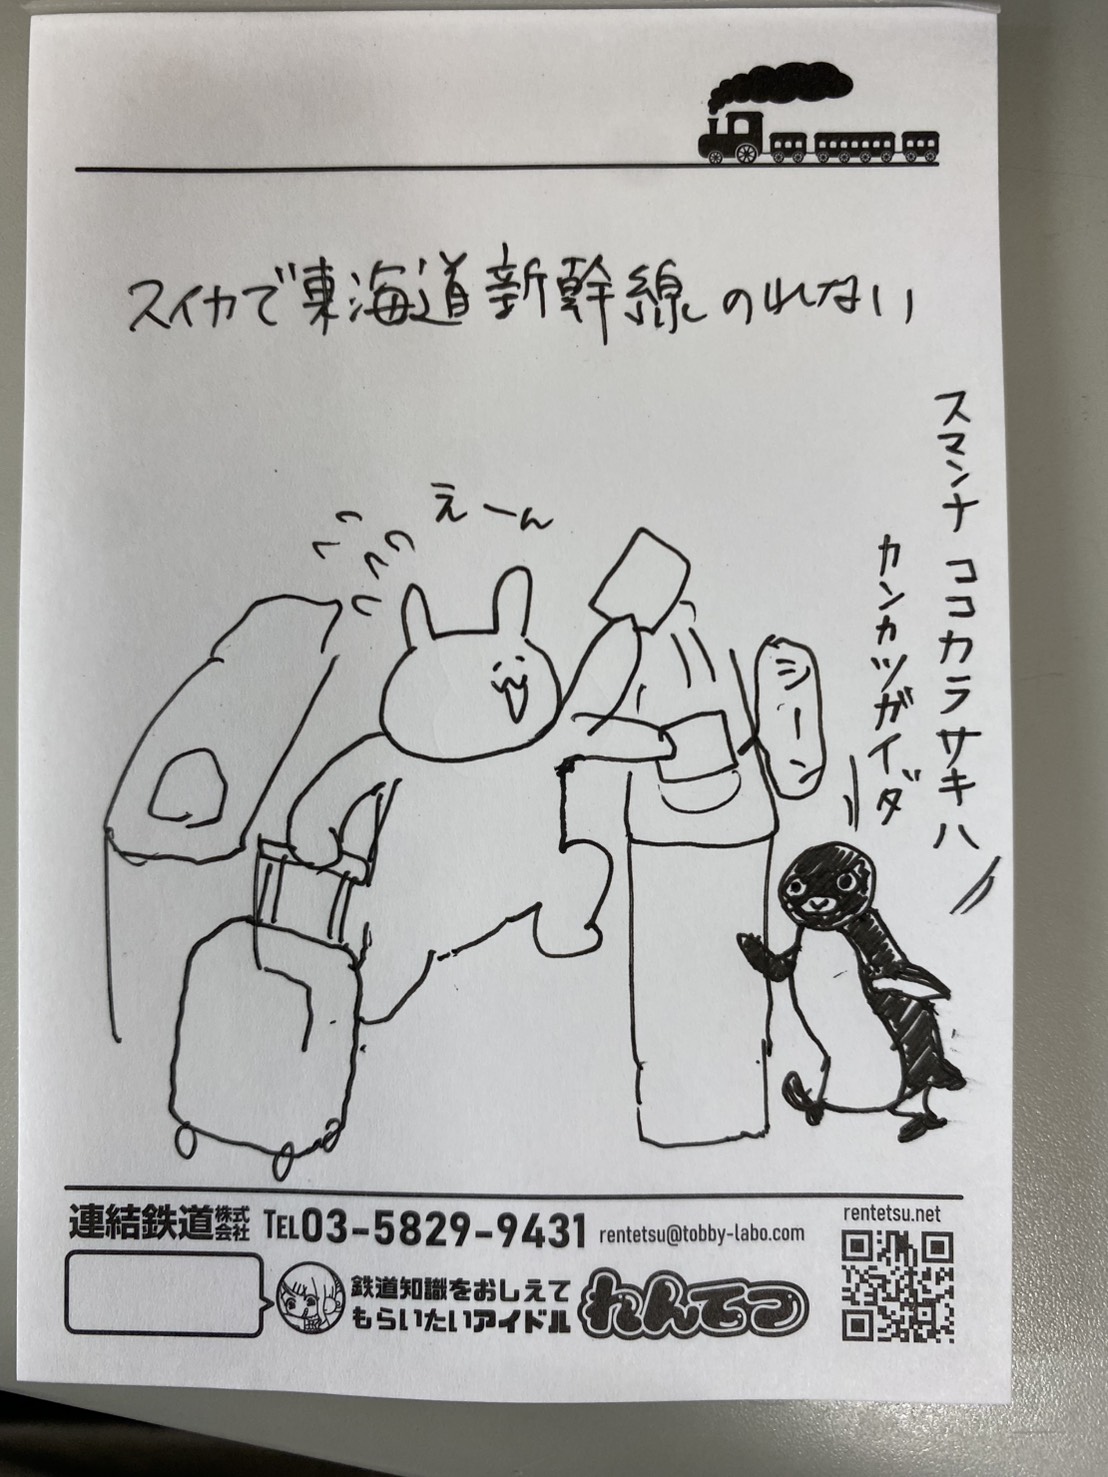 スイカで東海道新幹線のれない
えーん
シーン
スマンナ ココカラサキハ
カンカツガイダ
連結鉄道株式会社 TEL03-5829-9431 rentetsu@tobby-labo.com
rentetsu.net
鉄道知識をおしえて
もらいたいアイドル
れんてつ